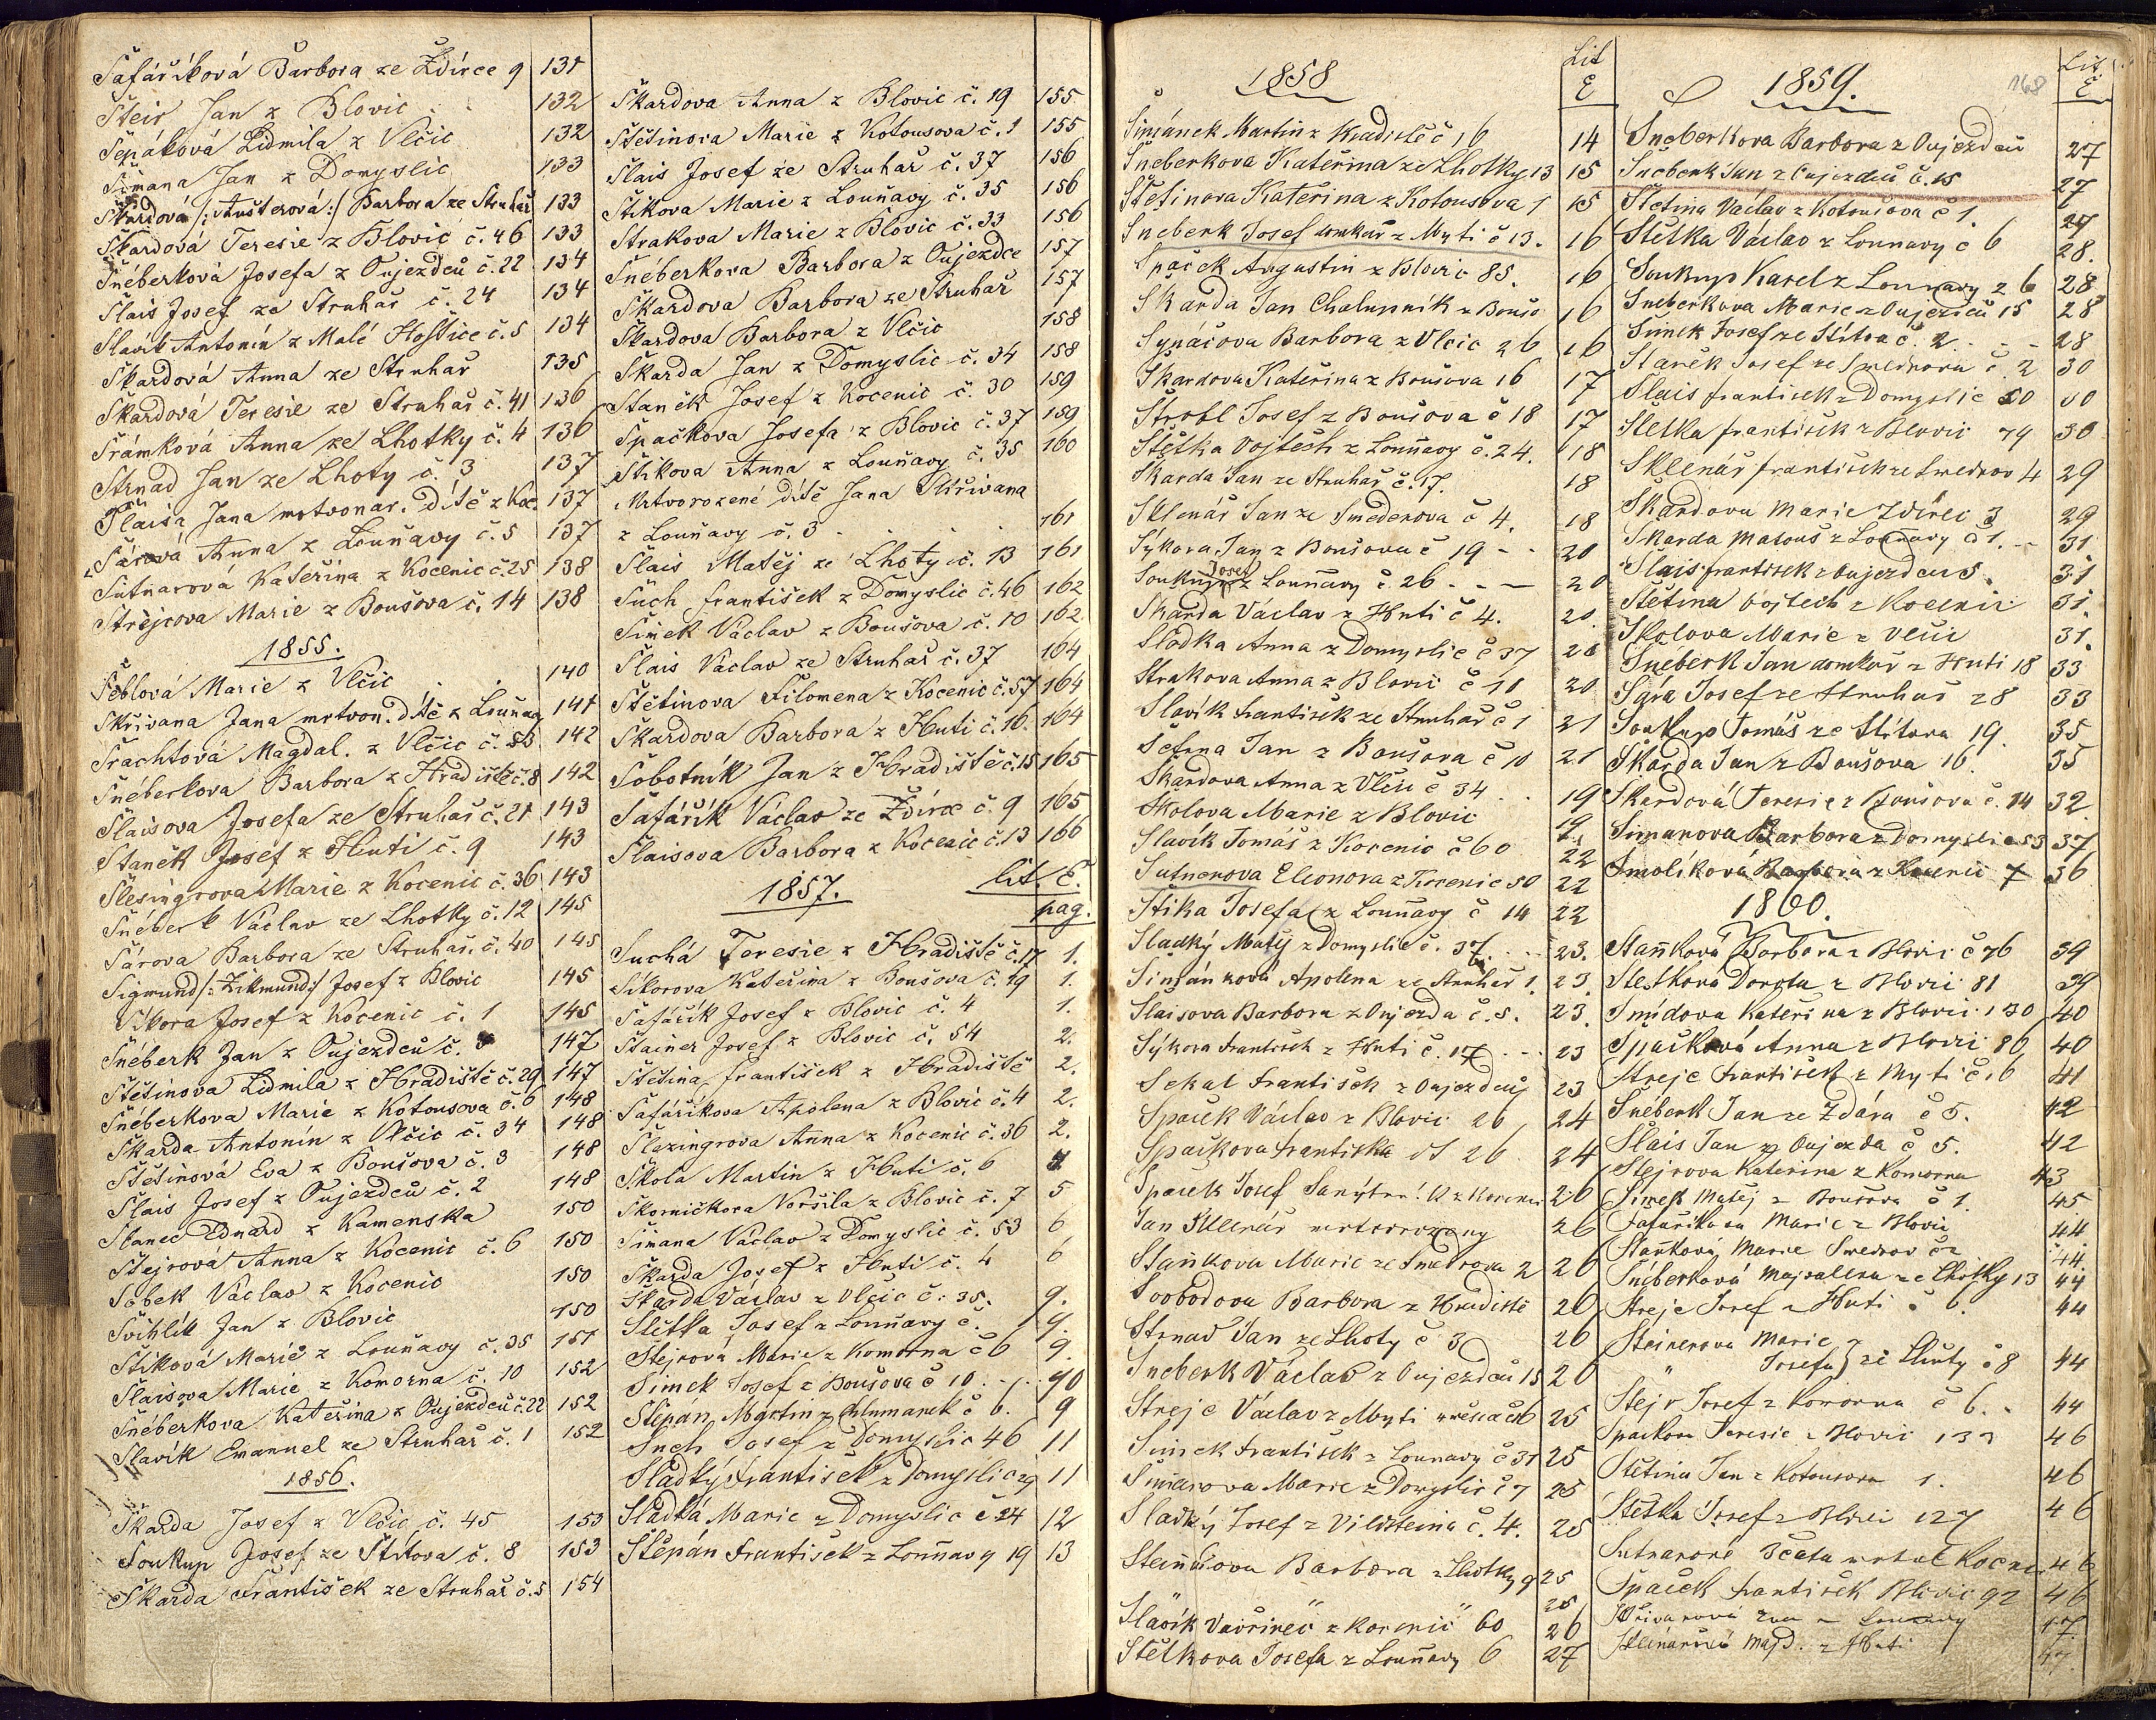 Šafáříková Barbora ze Ždírce 9 131
Šteir Jan z Blovic 132
Šepáková Lidmila z Vlčic 132
Šimana Jan z Domyslic 133
Škardová /:Aušterová:/ Barbora ze Struhař 133
Škardová Teresie z Blovic č. 46 133
Šnéberková Josefa z Oujezdců č. 22 134
Šlais Josef ze Struhař č. 24 134
Slavík Antonín z Malé Hoštice č. 5 134
Škardová Anna ze Struhař 135
Škardová Teresie ze Struhař č. 41 136
Šrámková Anna ze Lhotky č. 4 136
Strnad Jan ze Lhoty č. 3 137
Šlaisa Jana mrtvonar. Dítě z Koc. 137
Šárová Anna z Louňavy č. 5 137
Sutnarová Kateřina z Kocenic č. 25 138
Strejcova Marie z Boušova č. 14 138
1855.
Šeblová Marie z Vlčic 140
Skřivana Jana mrtvon. dítě z Louňavy 141
Šrachtová Magdal. z Vlčic č. 53 142
Šnéberkova Barbora z Hradiště č. 8 142
Šlaisova Josefa ze Struhař č. 21 143
Staněk Josef z Huti č. 9 143
Šlesingrova Marie z Kocenic č. 36 143
Šnéberk Václav ze Lhotky č. 12 145
Šárova Barbora ze Struhař. č. 40 145
Sigmund /:Zikmund:/ Josef z Blovic 145
Síkora Josef z Kocenic č. 1 145
Šnéberk Jan z Oujezdců č. 147
Štětinova Lidmila z Hradiště č. 29 147
Šnéberkova Marie z Kotousova č. 6 148
Škarda Antonín z Vlčic č. 34 148
Štětinová Eva z Boušova č. 3 148
Šlais Josef z Oujezdců č. 2 148
Stanec Eduard z Kamenska 150
Štejrová Anna z Kocenic č. 6 150
Sobek Václav z Kocenic 150
Švihlík Jan z Blovic 150
Štiková Marie z Louňavy č. 35 151
Šlaisova Marie z Komorna č. 10 152
Šnéberkova Kateřina z Oujezdců č. 22 152
Slavík Emanuel ze Struhař č. 1 152
1856.
Škarda Josef z Vlčic č. 45 153
Soukup Josef ze Štítova č. 8 153
Škarda František ze Struhař č. 5 154
Škardova Anna z Blovic č. 19 155
Štětinova Marie z Kotousova č. 1 155
Šlais Josef ze Struhař č. 37 156
Štikova Marie z Louňavy č. 35 156
Strakova Marie z Blovic č. 33 156
Šnéberkova Barbora z Oujezdce 157
Škardova Barbora ze Struhař 157
Škardova Barbora z Vlčic 158
Škarda Jan z Domyslic č. 34 158
Staněk Josef z Kocenic č. 30 159
Špačkova Josefa z Blovic č. 37 159
Štikova Anna z Louňavy č. 35 160
Mrtvorozené dítě Jana Skřivana
z Louňavy č. 3 161
Šlais Matěj ze Lhoty č. 13 161
Such František z Domyslic č. 46 162
Šimek Václav z Boušova č. 10 162
Šlais Václav ze Struhař č. 37 164
Štětinova Filomena z Kocenic č. 57 164
Škardova Barbora z Huti č. 16 164
Sobotník Jan z Hradiště č. 15 165
Šafářík Václav ze Ždírce č. 9 165
Šlaisova Barbora z Kocenic č. 13 166
1857. lit. E.
pag.
Suchá Teresie z Hradiště č. 17 1.
Síkorova Kateřina z Boušova č. 19 1.
Šafářík Josef z Blovic č. 4 1.
Štainer Josef z Blovic č. 54 2.
Štětina František z Hradiště 2.
Šafáříkova Apolena z Blovic č. 4 2.
Šlezingrova Anna z Kocenic č. 36 2.
Škola Martin z Huti č. 6
Skorničkova Voršila z Blovic č. 7 5
Šimana Václav z Domyslic č. 53 6
Škarda Josef z Huti č. 4 6
Škarda Václav z Vlčic č. 35. 9.
Štětka Josef z Louňavy č. 9.
Štejrová Marie z Komorna č 6 9.
Šimek Josef z Boušova č 10 . . . 90
Štěpán Martin z Chlumanek č 6. 9
Such Josef z Domyslic 46 11
Sladký František z Domyslic 29 11
Sladká Marie z Domyslic č 24 12
Štěpán František z Louňavy 19 13
1858 Lit
E
Šimánek Martin z Hradiště č 16 14
Šneberkova Kateřina ze Lhotky 13 15
Štětinova Kateřina z Kotousova 1 15
Šneberk Josef domkař z Mytí č 13. 16
Špaček Augustin z Blovic 85. 16
Škarda Jan Chalupník z Boušo 16
Synáčova Barbora z Vlčic 26 16
Škardova Kateřina z Boušova 16 17
Štrobl Josef z Boušova č 18 17
Štětka Vojtěch z Louňavy č. 24. 18
Škarda Jan ze Struhař č. 17. 18
Sklenář Jan ze Smederova č 4. 18
Sýkora Jan z Boušova č 19 - - 20
Josef
Soukup z Louňavy č 26 . - - 20
Škarda Václav z Huti č 4. 20.
Sladka Anna z Domyslic č 37 20
Strakova Anna z Blovic č 11 20
Slavík František ze Struhař č 1 21
Šetina Jan z Boušova č 10 21
Škardova Anna z Vlčic č 34 . . 19
Školova Marie z Blovic 19
Slavík Tomáš z Kocenic č 60 22
Sutnerova Eleonora z Kocenic 50 22
Štika Josefa z Louňavy č 14 22
Sladký Matěj z Domyslic č. 37. . . 23.
Šimánkova Apolena ze Struhař 1. 23.
Šlaisova Barbora z Oujezda č. 5. 23.
Sýkora František z Huti č. 17 . . . 23
Sekal František z Oujezdců 23
Špaček Václav z Blovic 26 24
Špačkova Františka 26 24
Špaček Josef 26
Jan Sklenář mrtvorozený 26
Staňkova Marie ze Smedrova 2 26
Svobodova Barbora z Hradiště 26
Strnad Jan ze Lhoty č 3 26
Šneberk Václav z Oujezdců 15 26
Strejc Václav z Mytí č 6 25
Šimek František z Lounavy č 31 25
Šimanova Marie z Domyslic č 7 25
Sladký Josef z Vildšteina č. 4. 25
Barbora z Lhotky 9 25
" " " 25
Slavík Vavřinec z Kocenic 60 26
Štětkova Josefa z Louňavy 6 27
1859. 168 Lit.
E
Šneberkova Barbora z Oujezdců 27
Šneberk Jan z Oujezdců č. 15 27
Štětina Václav z Kotousova č 1. 27
Štětka Václav z Lounavy č 6 28.
Soukup Karel z Lounavy 26 28
Šneberkova Marie z Oujezdců 15 28
Šimek Josef ze Štítova č. 2 . . - - 28
Staněk Josef ze Smedrova č. 2 30
Šlais František z Domyslic 50 30
Štětka František z Blovic 79 30
Sklenář František ze Smedrov 4 29
Škardova Marie Zdírec 3 29
Škarda Matouš z Louňavy č 1. - - 31
Šlais František z Oujezdců 5. 31
Štětina Vojtěch z Kocenic 31.
Školova Marie z Vlčic 31.
Šnéberk Jan domkář z Huti 18 33
Šára Josef ze Struhař 28 33
Soukup Tomáš ze Štítova 19. 35
Škarda Jan z Boušova 16. 35
Škardová Teresie z Boušova č. 14 32
Šimanova Barbora z Domyslic 53 37
Smolíková Barbora z Kocenic 7 36
1860.
Staňková Barbora z Blovic č 76 39
Štětkova Dorota z Blovic 81 39
Šmídova Kateřina z Blovic 130 40
Špačková Anna z Blovic 86 40
Strejc František z Mytí č. 6 41
Šnéberk Jan ze Zdára č 5. 42
Šlais Jan z Oujezda č 5. 42
Štejrova Kateřina z Komorna 43
Šimek Matěj z Boušova č 1. 45
Šafaříkova Marie z Blovic 44
Staňková Marie Smedrov č 2 44.
Šnéberková Majdalena ze Lhotky 13 44
Strejc Josef z Huti č 6. 44
Steinerová Marie
" Josefa ze Lhoty č 8 44
Štejr Josef z Komorna č 6. . 44
Špačkova Teresie z Blovic 133 46
Štětina Jan z Kotousova 1. 46
Štětka Josef z Blovic 127 46
Sutnarové 46
Špaček František Blovic 92 46
Skřivanová z Lounavy 47.
Sklenářová Majd. z Huti 47.